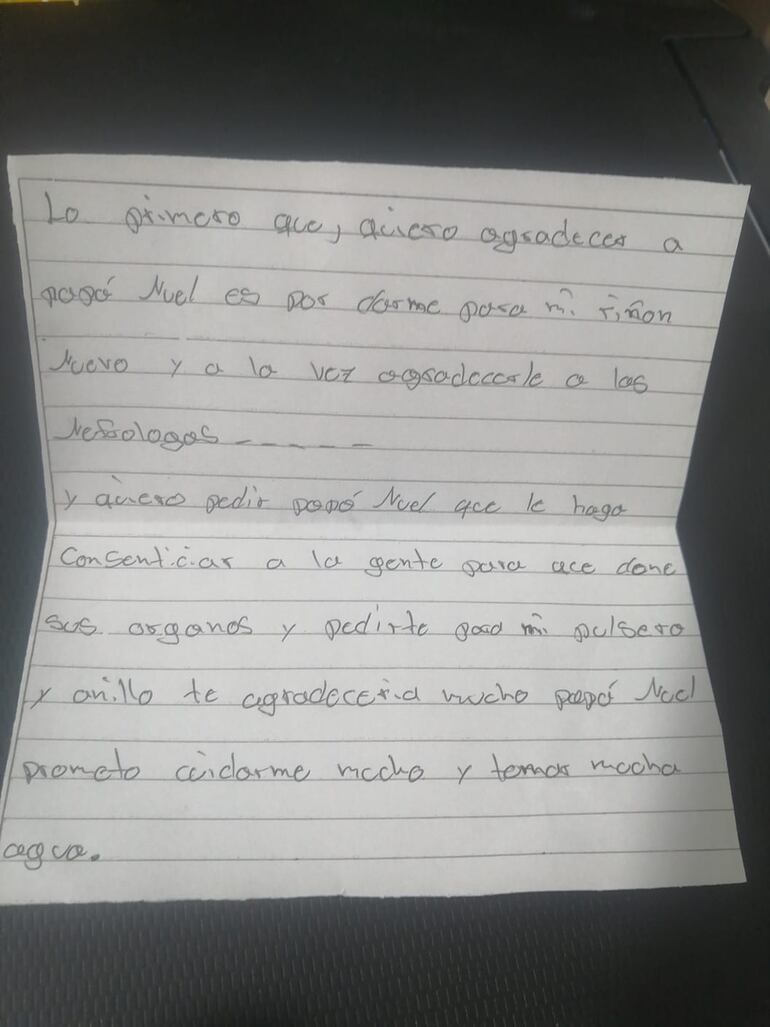 Lo primero que, quiero agradecer a
papá Nuel es por darme para mi riñon
Nuevo y a la vez agradecerle a las
Nefrologas _ _ _ _ _
y quiero pedir papá Nuel que le haga
Consenticiar a la gente para que done
sus organos y pedirte mi pulsera
y anillo te agradeceria mucho papá Noel
prometo cuidarme mucho y tomar mucha
agua.